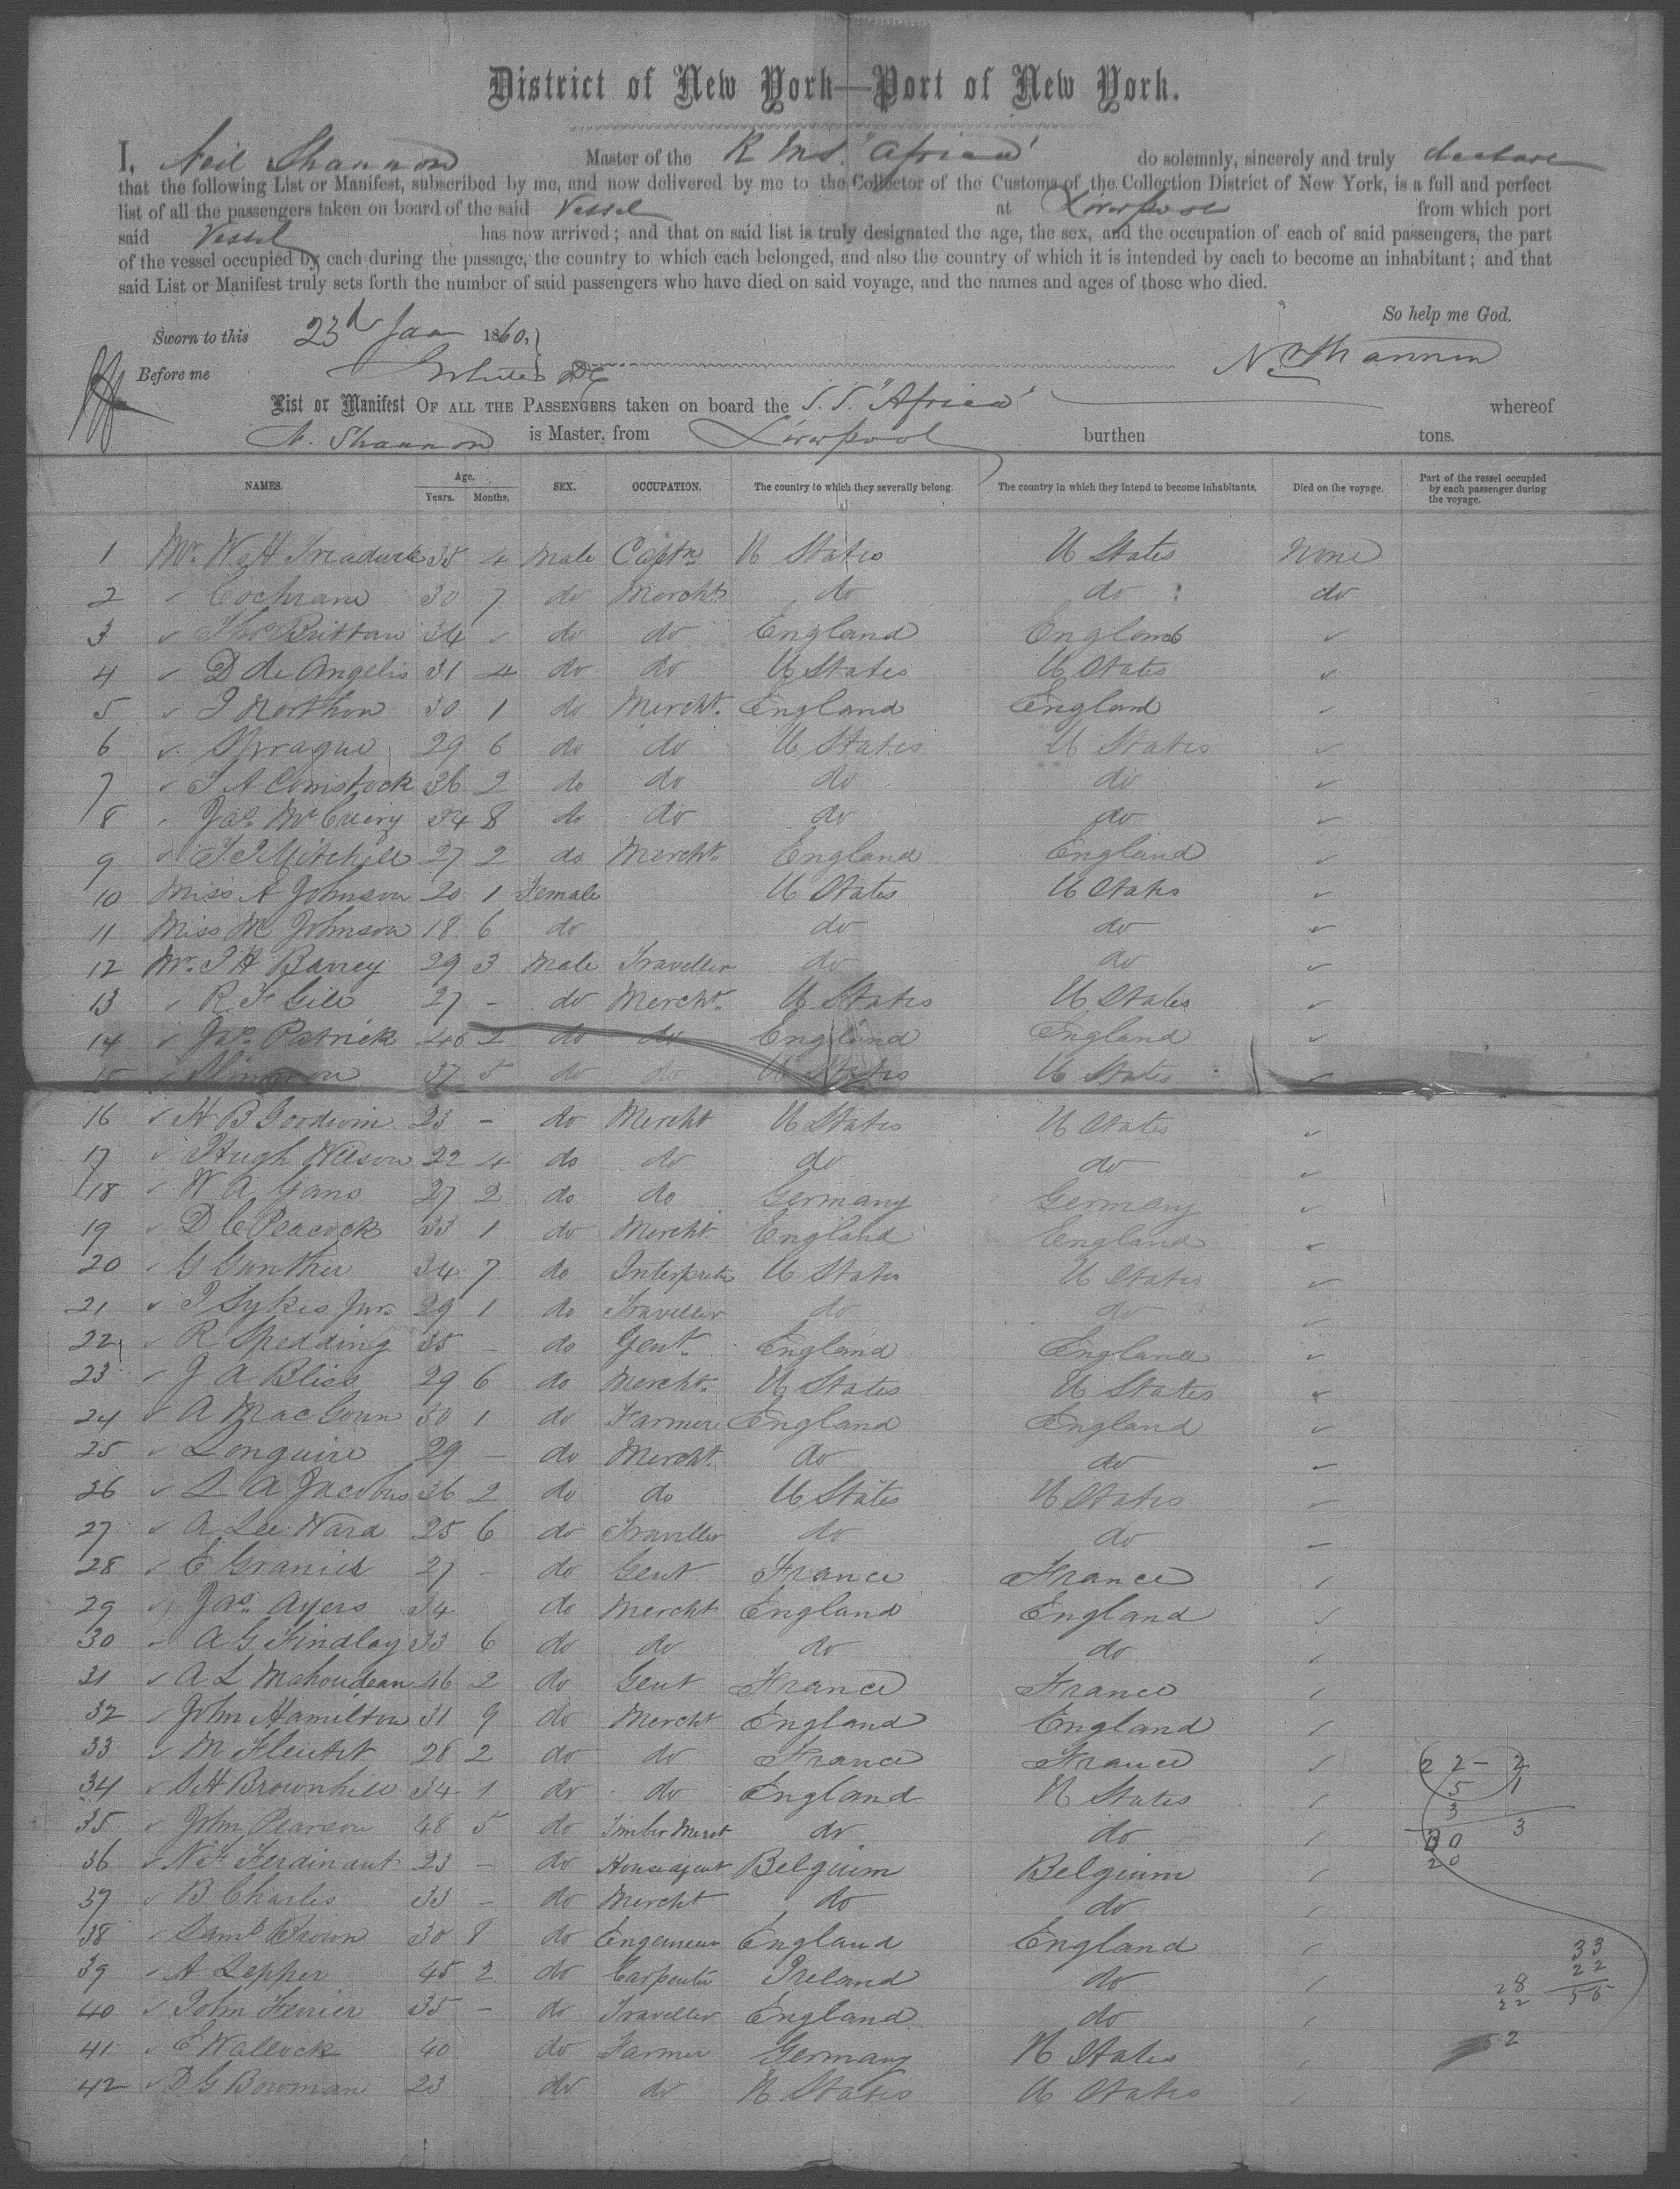 District of New York—Port of New York.
I, Neil Shannon Master of the R M S. "Africa" do solemnly, sincerely and truly declare
that the following List or Manifest, subscribed by me, and now delivered by me to the Collector of the Customs of the Collection District of New York, is a full and perfect
list of all the passengers taken on board of the said Vessel at Liverpool from which port
said Vessel has now arrived; and that on said list is truly designated the age, the sex, and the occupation of each of said passengers, the part
of the vessel occupied by each during the passage, the country to which each belonged, and also the country of which it is intended by each to become an inhabitant; and that
said List or Manifest truly sets forth the number of said passengers who have died on said voyage, and the names and ages of those who died.
So help me God.
Sworn to this 23d Jan 1860,
Before me N. Shannon
List or Manifest OF ALL THE PASSENGERS taken on board the S.S. "Africa" whereof
N. Shannon is Master, from Liverpool burthen tons.
NAMES. Age. Years. Months. SEX. OCCUPATION. The country to which they severally belong. The country in which they intend to become inhabitants. Died on the voyage. Part of the vessel occupied by each passenger during the voyage.
1 Mr. W H 35 4 Male Captn U States U States None
2 " Cochrane 30 7 do Mercht do do do
3 " Thos Brittan 34 " do do England England "
4 " D de Angelis 31 4 do do U States U States "
5 " J Northon 30 1 do Mercht. England England "
6 " Sprague 29 6 do do U States U States "
7 " T A Comstock 36 2 do do do do "
8 " Jas. 34 8 do do do do "
9 " Mitchell 27 2 do Mercht. England England "
10 Miss A Johnson 20 1 Female U States U States "
11 Miss M Johnson 18 6 do do do "
12 Mr. J H 29 3 Male Traveller do do "
13 " R F Gill 27 - do Mercht. U States U States "
14 " Jas. Patrick 2 do do England England "
15 " 37 5 do do U States U States "
16 " H B Goodwin 23 - do Mercht U States U States "
17 " Hugh Wilson 22 4 do do do do "
18 " W A Gans 27 2 do do Germany Germany "
19 " D C Peacock 33 1 do Mercht England England "
20 " G Gunther 34 7 do Interpreter U States U States "
21 " J Sykes Jnr. 29 1 do Traveller do do "
22 " R Spedding 35 - do Gent. England England "
23 " J A Bliss 29 6 do Mercht. U States U States "
24 " A MacGoun 30 1 do Farmer England England "
25 " Longuire 29 - do Mercht. do do "
26 " L A Jacobus 36 2 do do U States U States "
27 " A Lee Ward 25 6 do Traveller do do "
28 " E 27 - do Gent France France "
29 " Jas. Ayers 34 do Mercht England England "
30 " A G Findlay 33 6 do do do do "
31 " A L Mahoudean 46 2 do Gent France France "
32 " John Hamilton 31 9 do Mercht England England "
33 " M 28 2 do do France France "
34 " S H Brownhill 34 1 do do England U States "
35 " John Pearson 48 5 do Timber Merct do do "
36 " N F Ferdinant 23 - do House agent Belgium Belgium "
37 " B Charles 33 - do Mercht do do "
38 " Saml Brown 30 8 do Engeneur England England "
39 " A Lepper 45 2 do Carpenter Ireland do "
40 " John Ferrier 35 - do Traveller England do "
41 " E Wallock 40 do Farmer Germany U States "
42 " D G Bowman 23 do do U States U States "
22-2
5 1
3
30 3
20
33
22
55
28
22
52